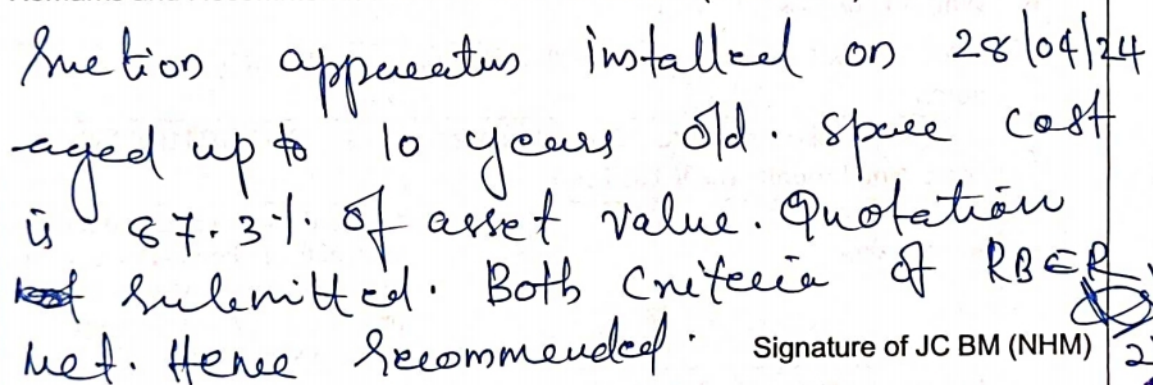 Suction apparatus installed on 28/04/24
aged up to 10 years old. Spare cost
is 87.3%. of asset value. Quotation
submitted. Both Criteria of RBER
met. Hence recommended.
Signature of JC BM (NHM)